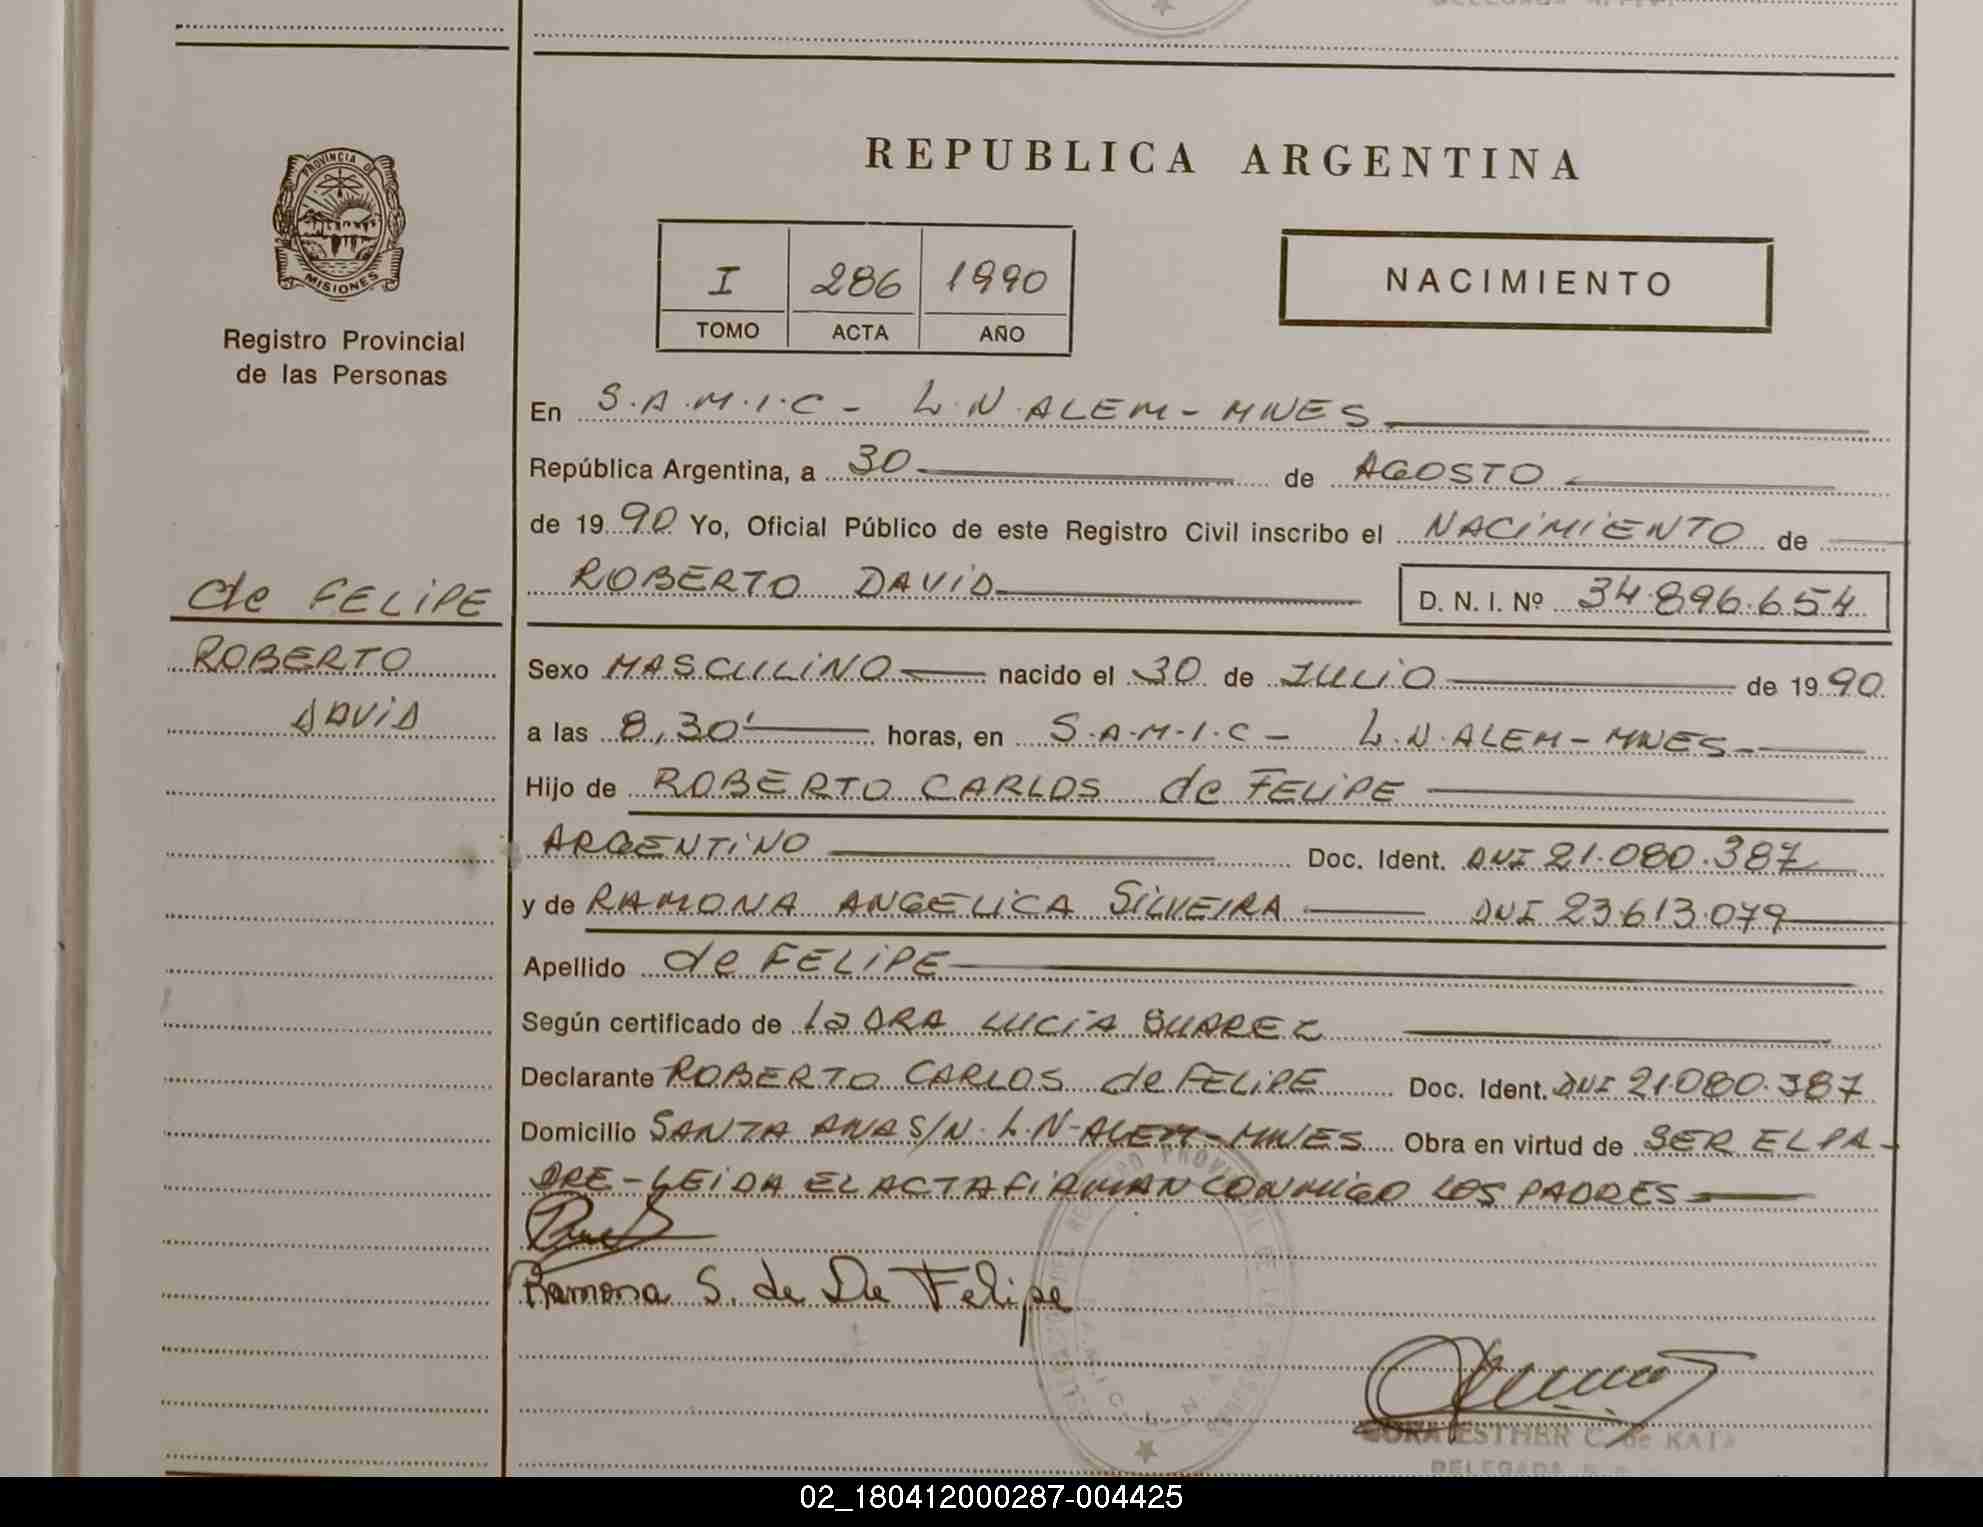 REPUBLICA ARGENTINA
PROVINCIA DE
MISIONES
Registro Provincial
de las Personas
I 286 1990
TOMO ACTA AÑO
NACIMIENTO
En S.A.M.I.C - L.N.ALEM - MNES
República Argentina, a 30 de AGOSTO
de 1990 Yo, Oficial Público de este Registro Civil inscribo el NACIMIENTO de
ROBERTO DAVID D. N. I. Nº 34.896.654
de FELIPE
ROBERTO
DAVID
Sexo MASCULINO nacido el 30 de JULIO de 1990
a las 8,30' horas, en S.A.M.I.C - L.N.ALEM - MNES
Hijo de ROBERTO CARLOS de FELIPE
ARGENTINO Doc. Ident. DNI 21.080.387
y de RAMONA ANGELICA SILVEIRA DNI 23.613.079
Apellido de FELIPE
Según certificado de la DRA LUCIA SUAREZ
Declarante ROBERTO CARLOS de FELIPE Doc. Ident. DNI 21.080.387
Domicilio SANTA ANA S/N. L.N-ALEM-MNES Obra en virtud de SER EL PA-
DRE - LEIDA EL ACTA FIRMAN CONMIGO LOS PADRES
Ramona S. de De Felipe
ESTHER C. de KATZ
DELEGADA
02_180412000287-004425